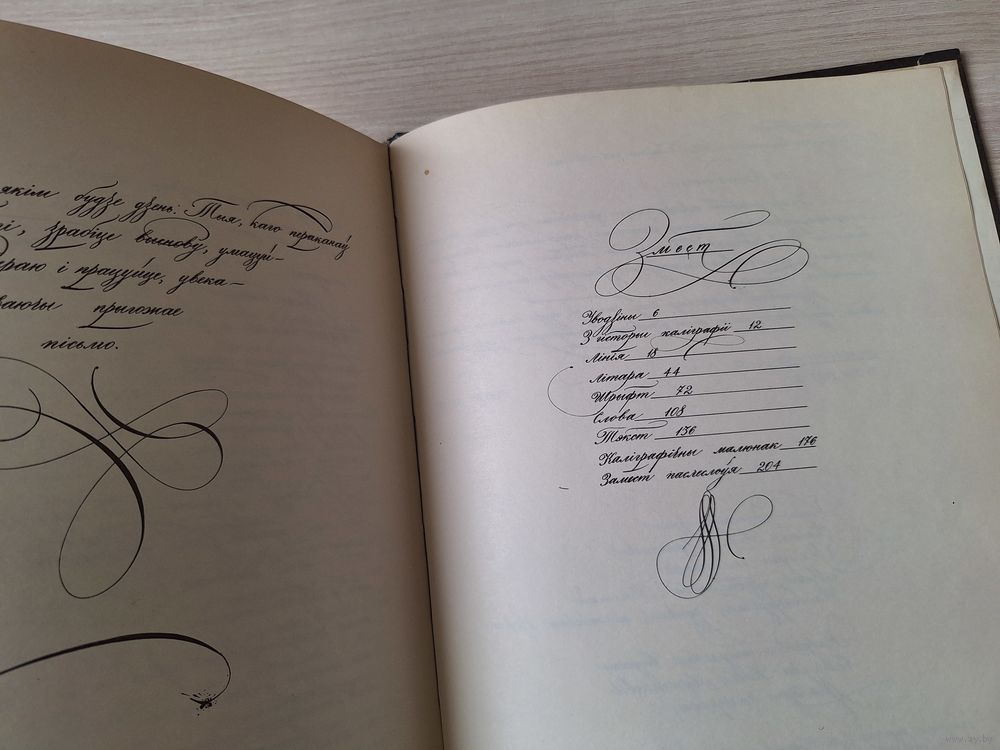 якім будзе дзень: Тыя, каго пераканаў
і, зрабіце выснову, умацуй–
раю і працуйце, увека–
ваючы прыгожае
пісьмо.
Змест
Уводзіны 6
З гісторыі каліграфіі 12
Лінія 18
Літара 44
Шрыфт 72
Слова 108
Тэкст 136
Каліграфічны малюнак 176
Замест пасляслоўя 204